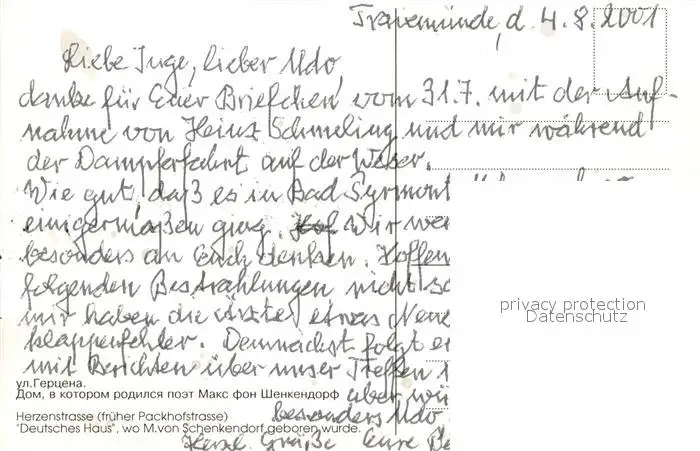 Travemünde, d. 4.8.2001
Liebe Inge, lieber Udo,
danke für Euer Briefchen vom 31.7. mit der Auf-
nahme von Heinz Schmeling und mir während
der Dampferfahrt auf der Weser.
Wie gut, daß es in Bad Pyrmont
einigermaßen ging. Wir wer
besonders an Euch denken. Hoffen
folgenden Bestrahlungen nicht so
mir haben die Ärzte etwas Neue
klappenfehler. Demnächst folgt er
mit Berichten über unser Treffen
ул.Герцена.
Дом, в котором родился поэт Макс фон Шенкендорф
aber wün
Herzenstrasse (früher Packhofstrasse)
besonders Udo
"Deutsches Haus", wo M.von Schenkendorf geboren wurde.
Herzl. Grüße Eure Be
privacy protection
Datenschutz